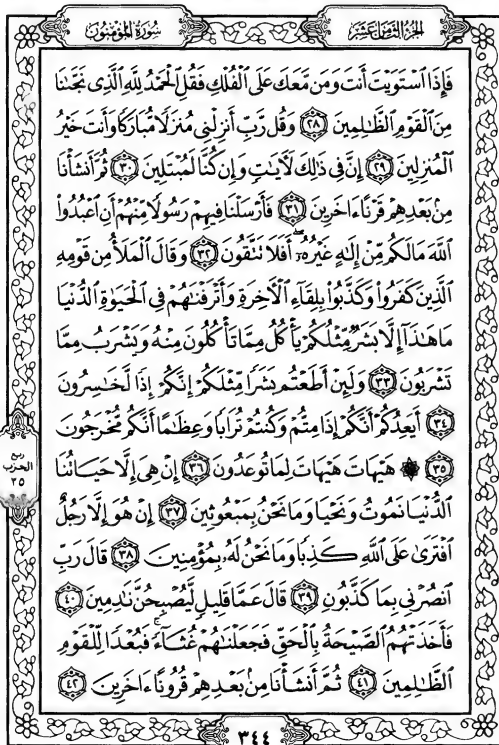 الجزء الثامن عشر
سورة المؤمنون
فَإِذَا ٱسْتَوَيْتَ أَنتَ وَمَن مَّعَكَ عَلَى ٱلْفُلْكِ فَقُلِ ٱلْحَمْدُ لِلَّهِ ٱلَّذِى نَجَّىٰنَا
مِنَ ٱلْقَوْمِ ٱلظَّٰلِمِينَ ٢٨ وَقُل رَّبِّ أَنزِلْنِى مُنزَلًا مُّبَارَكًا وَأَنتَ خَيْرُ
ٱلْمُنزِلِينَ ٢٩ إِنَّ فِى ذَٰلِكَ لَءَايَٰتٍ وَإِن كُنَّا لَمُبْتَلِينَ ٣٠ ثُمَّ أَنشَأْنَا
مِنۢ بَعْدِهِمْ قَرْنًا ءَاخَرِينَ ٣١ فَأَرْسَلْنَا فِيهِمْ رَسُولًا مِّنْهُمْ أَنِ ٱعْبُدُوا۟
ٱللَّهَ مَا لَكُم مِّنْ إِلَٰهٍ غَيْرُهُۥٓ ۖ أَفَلَا تَتَّقُونَ ٣٢ وَقَالَ ٱلْمَلَأُ مِن قَوْمِهِ
ٱلَّذِينَ كَفَرُوا۟ وَكَذَّبُوا۟ بِلِقَآءِ ٱلْءَاخِرَةِ وَأَتْرَفْنَٰهُمْ فِى ٱلْحَيَوٰةِ ٱلدُّنْيَا
مَا هَٰذَآ إِلَّا بَشَرٌ مِّثْلُكُمْ يَأْكُلُ مِمَّا تَأْكُلُونَ مِنْهُ وَيَشْرَبُ مِمَّا
تَشْرَبُونَ ٣٣ وَلَئِنْ أَطَعْتُم بَشَرًا مِّثْلَكُمْ إِنَّكُمْ إِذًا لَّخَٰسِرُونَ
٣٤ أَيَعِدُكُمْ أَنَّكُمْ إِذَا مِتُّمْ وَكُنتُمْ تُرَابًا وَعِظَٰمًا أَنَّكُم مُّخْرَجُونَ
٣٥ ۞ هَيْهَاتَ هَيْهَاتَ لِمَا تُوعَدُونَ ٣٦ إِنْ هِىَ إِلَّا حَيَاتُنَا
ٱلدُّنْيَا نَمُوتُ وَنَحْيَا وَمَا نَحْنُ بِمَبْعُوثِينَ ٣٧ إِنْ هُوَ إِلَّا رَجُلٌ
ٱفْتَرَىٰ عَلَى ٱللَّهِ كَذِبًا وَمَا نَحْنُ لَهُۥ بِمُؤْمِنِينَ ٣٨ قَالَ رَبِّ
ٱنصُرْنِى بِمَا كَذَّبُونِ ٣٩ قَالَ عَمَّا قَلِيلٍ لَّيُصْبِحُنَّ نَٰدِمِينَ ٤٠
فَأَخَذَتْهُمُ ٱلصَّيْحَةُ بِٱلْحَقِّ فَجَعَلْنَٰهُمْ غُثَآءً ۚ فَبُعْدًا لِّلْقَوْمِ
ٱلظَّٰلِمِينَ ٤١ ثُمَّ أَنشَأْنَا مِنۢ بَعْدِهِمْ قُرُونًا ءَاخَرِينَ ٤٢
ربع
الحزب
٣٥
٣٤٤